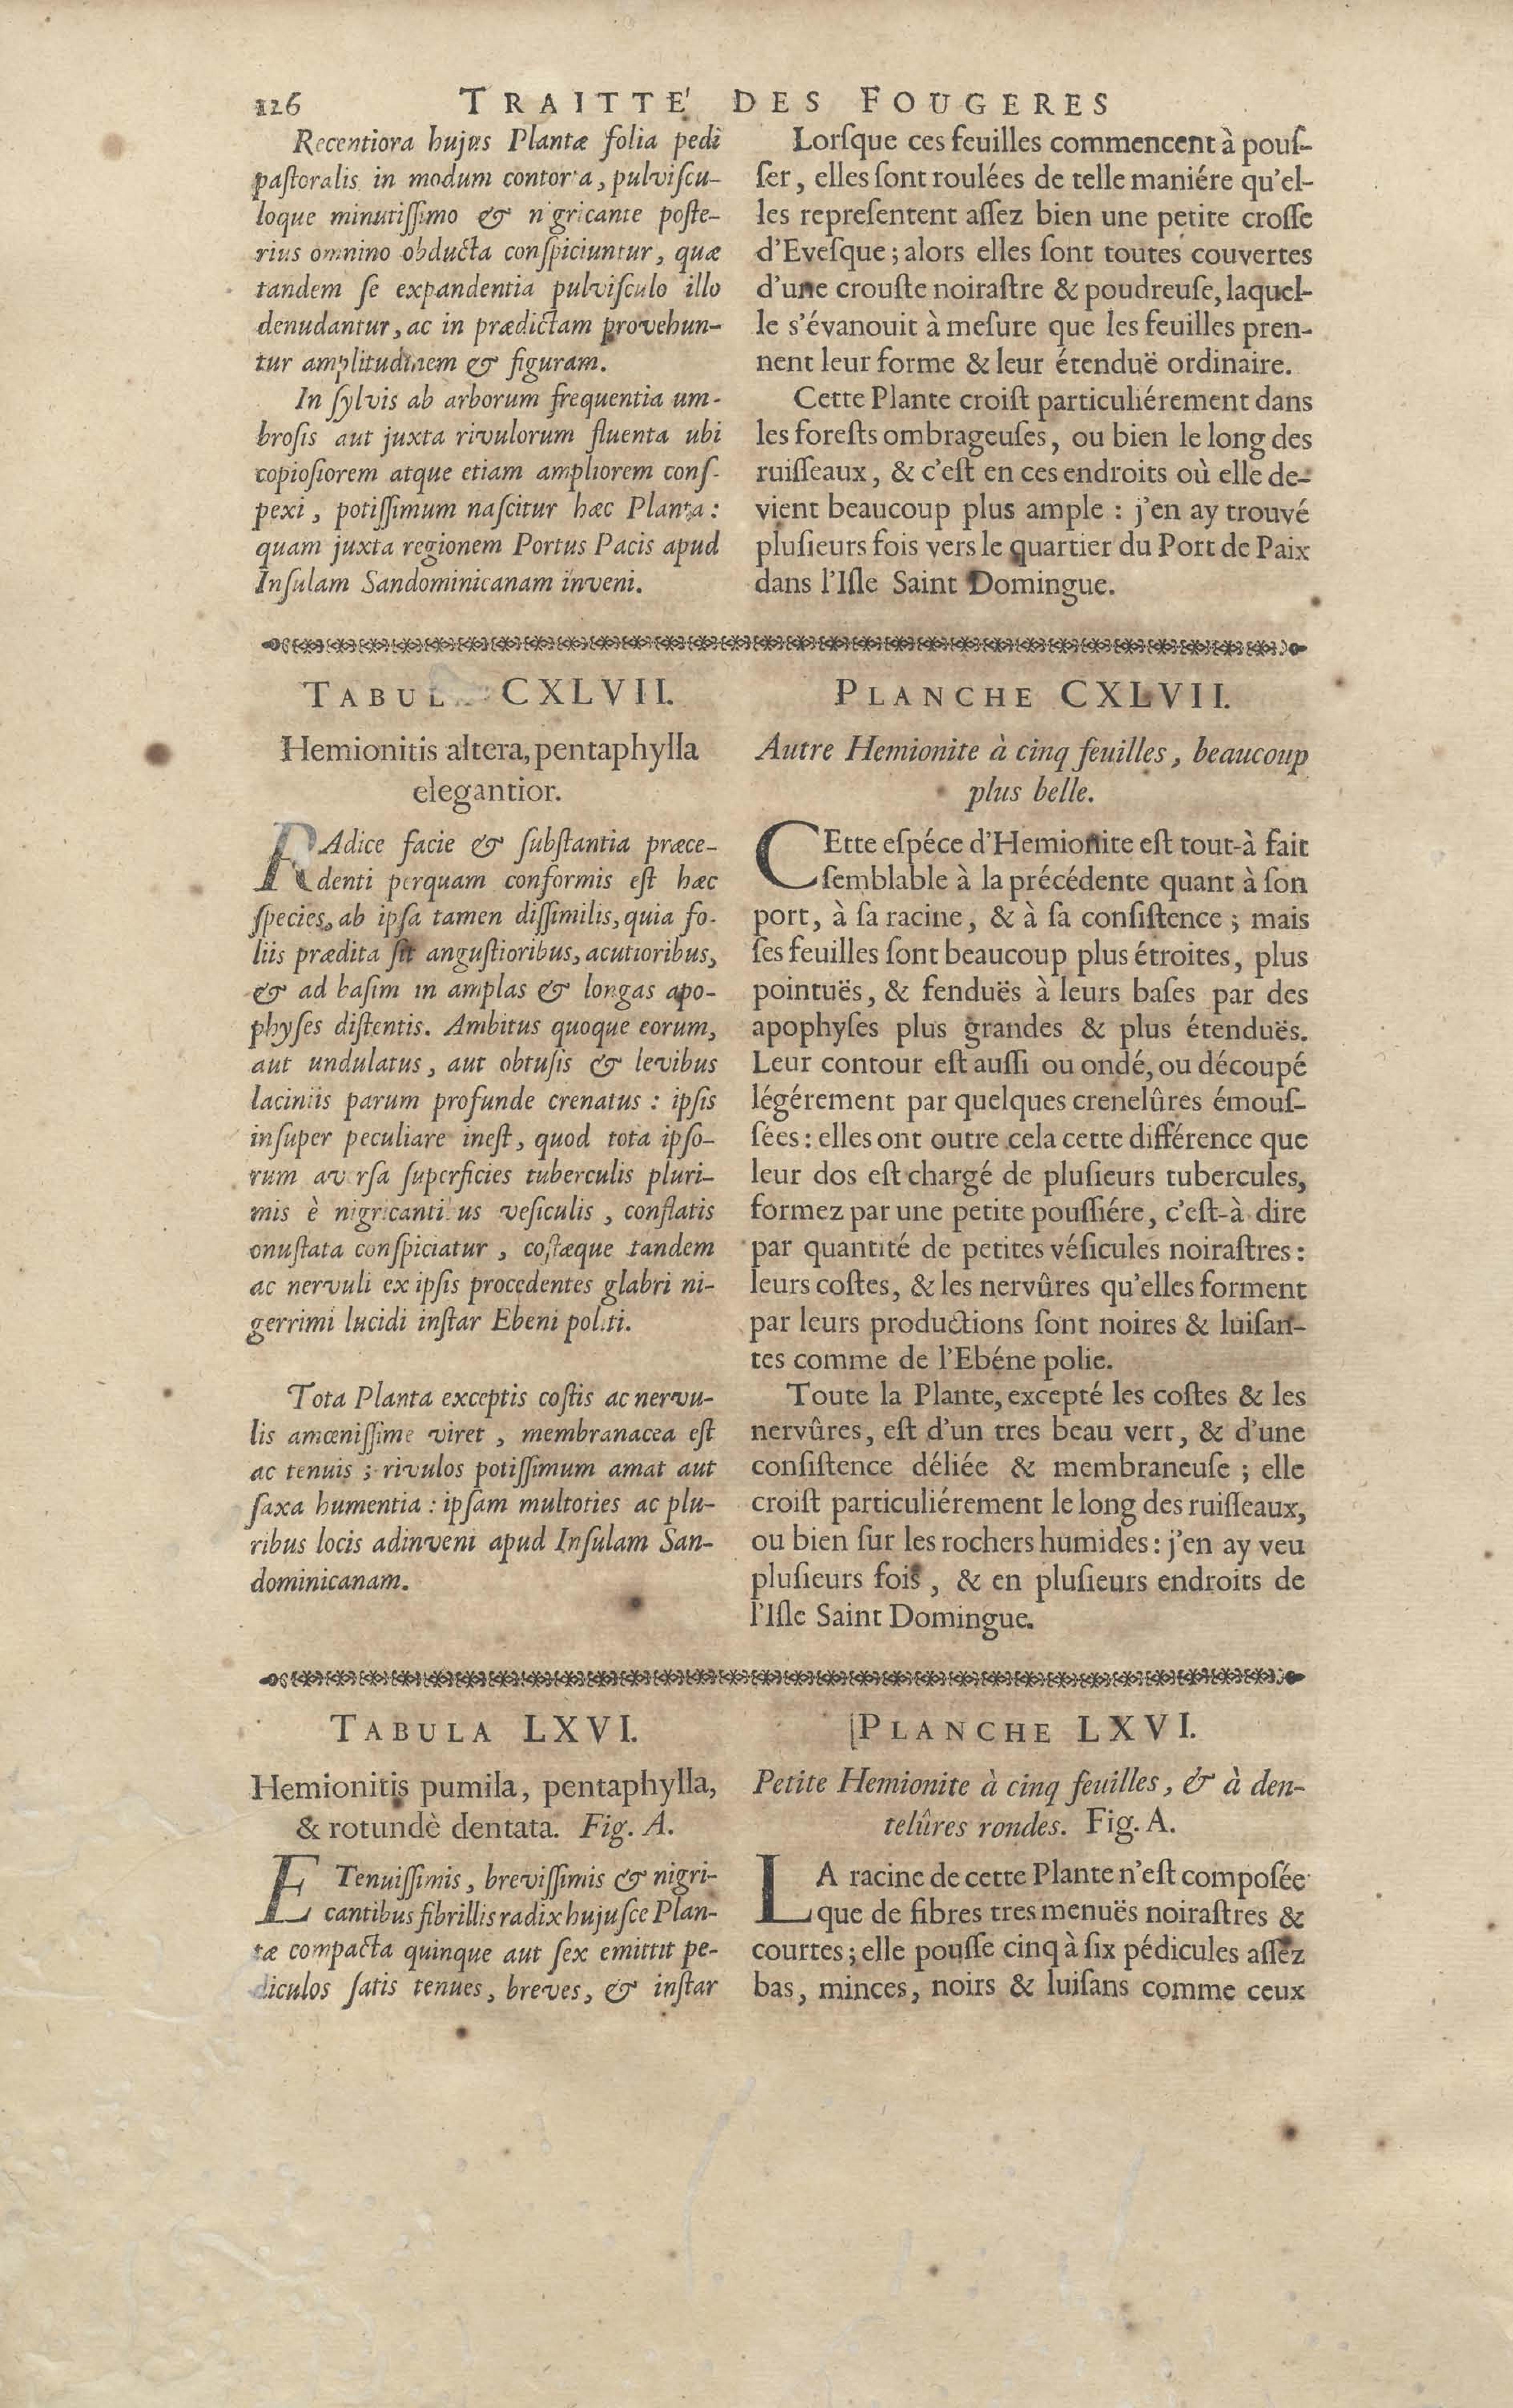 126 TRAITTE' DES FOUGERES
Recentiora hujus Plantæ folia pedi
paſtoralis in modum contorta, pulviſcu-
loque minutiſſimo & nigricante poſte-
rius omnino obducta conſpiciuntur, quæ
tandem ſe expandentia pulviſculo illo
denudantur, ac in prædictam provehun-
tur amplitudinem & figuram.
In ſylvis ab arborum frequentia um-
broſis aut juxta rivulorum fluenta ubi
copioſiorem atque etiam ampliorem conſ-
pexi, potiſſimum naſcitur hæc Planta:
quam juxta regionem Portus Pacis apud
Inſulam Sandominicanam inveni.
Lorſque ces feuilles commencent à pouſ-
ſer, elles ſont roulées de telle maniére qu'el-
les repreſentent aſſez bien une petite croſſe
d'Eveſque; alors elles ſont toutes couvertes
d'une crouſte noiraſtre & poudreuſe, laquel-
le s'évanouit à meſure que les feuilles pren-
nent leur forme & leur étenduë ordinaire.
Cette Plante croiſt particuliérement dans
les foreſts ombrageuſes, ou bien le long des
ruiſſeaux, & c'eſt en ces endroits où elle de-
vient beaucoup plus ample : j'en ay trouvé
pluſieurs fois vers le quartier du Port de Paix
dans l'Iſle Saint Domingue.
TABULA CXLVII.
Hemionitis altera, pentaphylla
elegantior.
RAdice facie & ſubſtantia præce-
denti perquam conformis eſt hæc
ſpecies, ab ipſa tamen diſſimilis, quia fo-
liis prædita ſit anguſtioribus, acutioribus,
& ad baſim in amplas & longas apo-
phyſes diſtentis. Ambitus quoque eorum,
aut undulatus, aut obtuſis & levibus
laciniis parum profunde crenatus : ipſis
inſuper peculiare ineſt, quod tota ipſo-
rum averſa ſuperficies tuberculis pluri-
mis è nigricantibus veſiculis, conflatis
onuſtata conſpiciatur, coſtæque tandem
ac nervuli ex ipſis procedentes glabri ni-
gerrimi lucidi inſtar Ebeni politi.
Tota Planta exceptis coſtis ac nervu-
lis amœniſſime viret, membranacea eſt
ac tenuis ; rivulos potiſſimum amat aut
ſaxa humentia : ipſam multoties ac plu-
ribus locis adinveni apud Inſulam San-
dominicanam.
PLANCHE CXLVII.
Autre Hemionite à cinq feuilles, beaucoup
plus belle.
CEtte eſpéce d'Hemionite eſt tout-à fait
ſemblable à la précédente quant à ſon
port, à ſa racine, & à ſa conſiſtence ; mais
ſes feuilles ſont beaucoup plus étroites, plus
pointuës, & fenduës à leurs baſes par des
apophyſes plus grandes & plus étenduës.
Leur contour eſt auſſi ou ondé, ou découpé
légérement par quelques crenelûres émouſ-
ſées : elles ont outre cela cette différence que
leur dos eſt chargé de pluſieurs tubercules,
formez par une petite pouſſiére, c'eſt-à dire
par quantité de petites véſicules noiraſtres :
leurs coſtes, & les nervûres qu'elles forment
par leurs productions ſont noires & luiſan-
tes comme de l'Ebéne polie.
Toute la Plante, excepté les coſtes & les
nervûres, eſt d'un tres beau vert, & d'une
conſiſtence déliée & membraneuſe ; elle
croiſt particuliérement le long des ruiſſeaux,
ou bien ſur les rochers humides : j'en ay veu
pluſieurs fois, & en pluſieurs endroits de
l'Iſle Saint Domingue.
TABULA LXVI.
Hemionitis pumila, pentaphylla,
& rotundè dentata. Fig. A.
E Tenuiſſimis, breviſſimis & nigri-
cantibus fibrillis radix hujuſce Plan-
tæ compacta quinque aut ſex emittit pe-
diculos ſatis tenues, breves, & inſtar
PLANCHE LXVI.
Petite Hemionite à cinq feuilles, & à den-
telûres rondes. Fig. A.
LA racine de cette Plante n'eſt compoſée
que de fibres tres menuës noiraſtres &
courtes ; elle pouſſe cinq à ſix pédicules aſſez
bas, minces, noirs & luiſans comme ceux